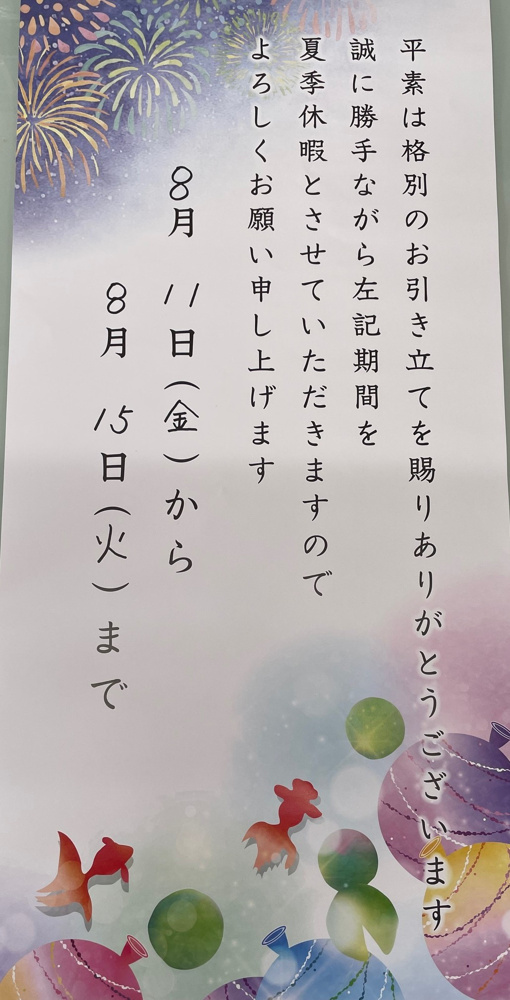 平素は格別のお引き立てを賜りありがとうございます
誠に勝手ながら左記期間を
夏季休暇とさせていただきますので
よろしくお願い申し上げます
8月 11日(金)から
8月 15日(火)まで